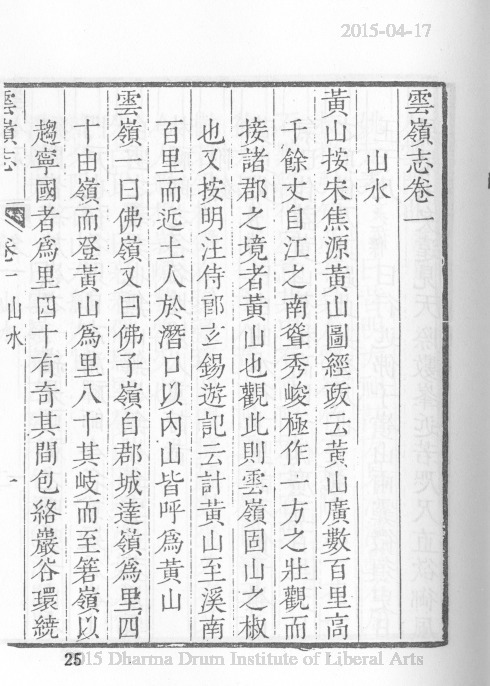 2015-04-17
雲嶺志卷一
山水
黃山按宋焦源黃山圖經䟦云黃山廣數百里高
千餘丈自江之南聳秀峻極作一方之壯觀而
接諸郡之境者黃山也觀此則雲嶺固山之椒
也又按明汪侍郎玄錫遊記云計黃山至溪南
百里而近土人於潛口以內山皆呼為黃山
雲嶺一曰佛嶺又曰佛子嶺自郡城達嶺為里四
十由嶺而登黃山為里八十其岐而至箬嶺以
趨寧國者為里四十有奇其間包絡巖谷環繞
雲嶺志 卷一 山水 一
25
2015 Dharma Drum Institute of Liberal Arts